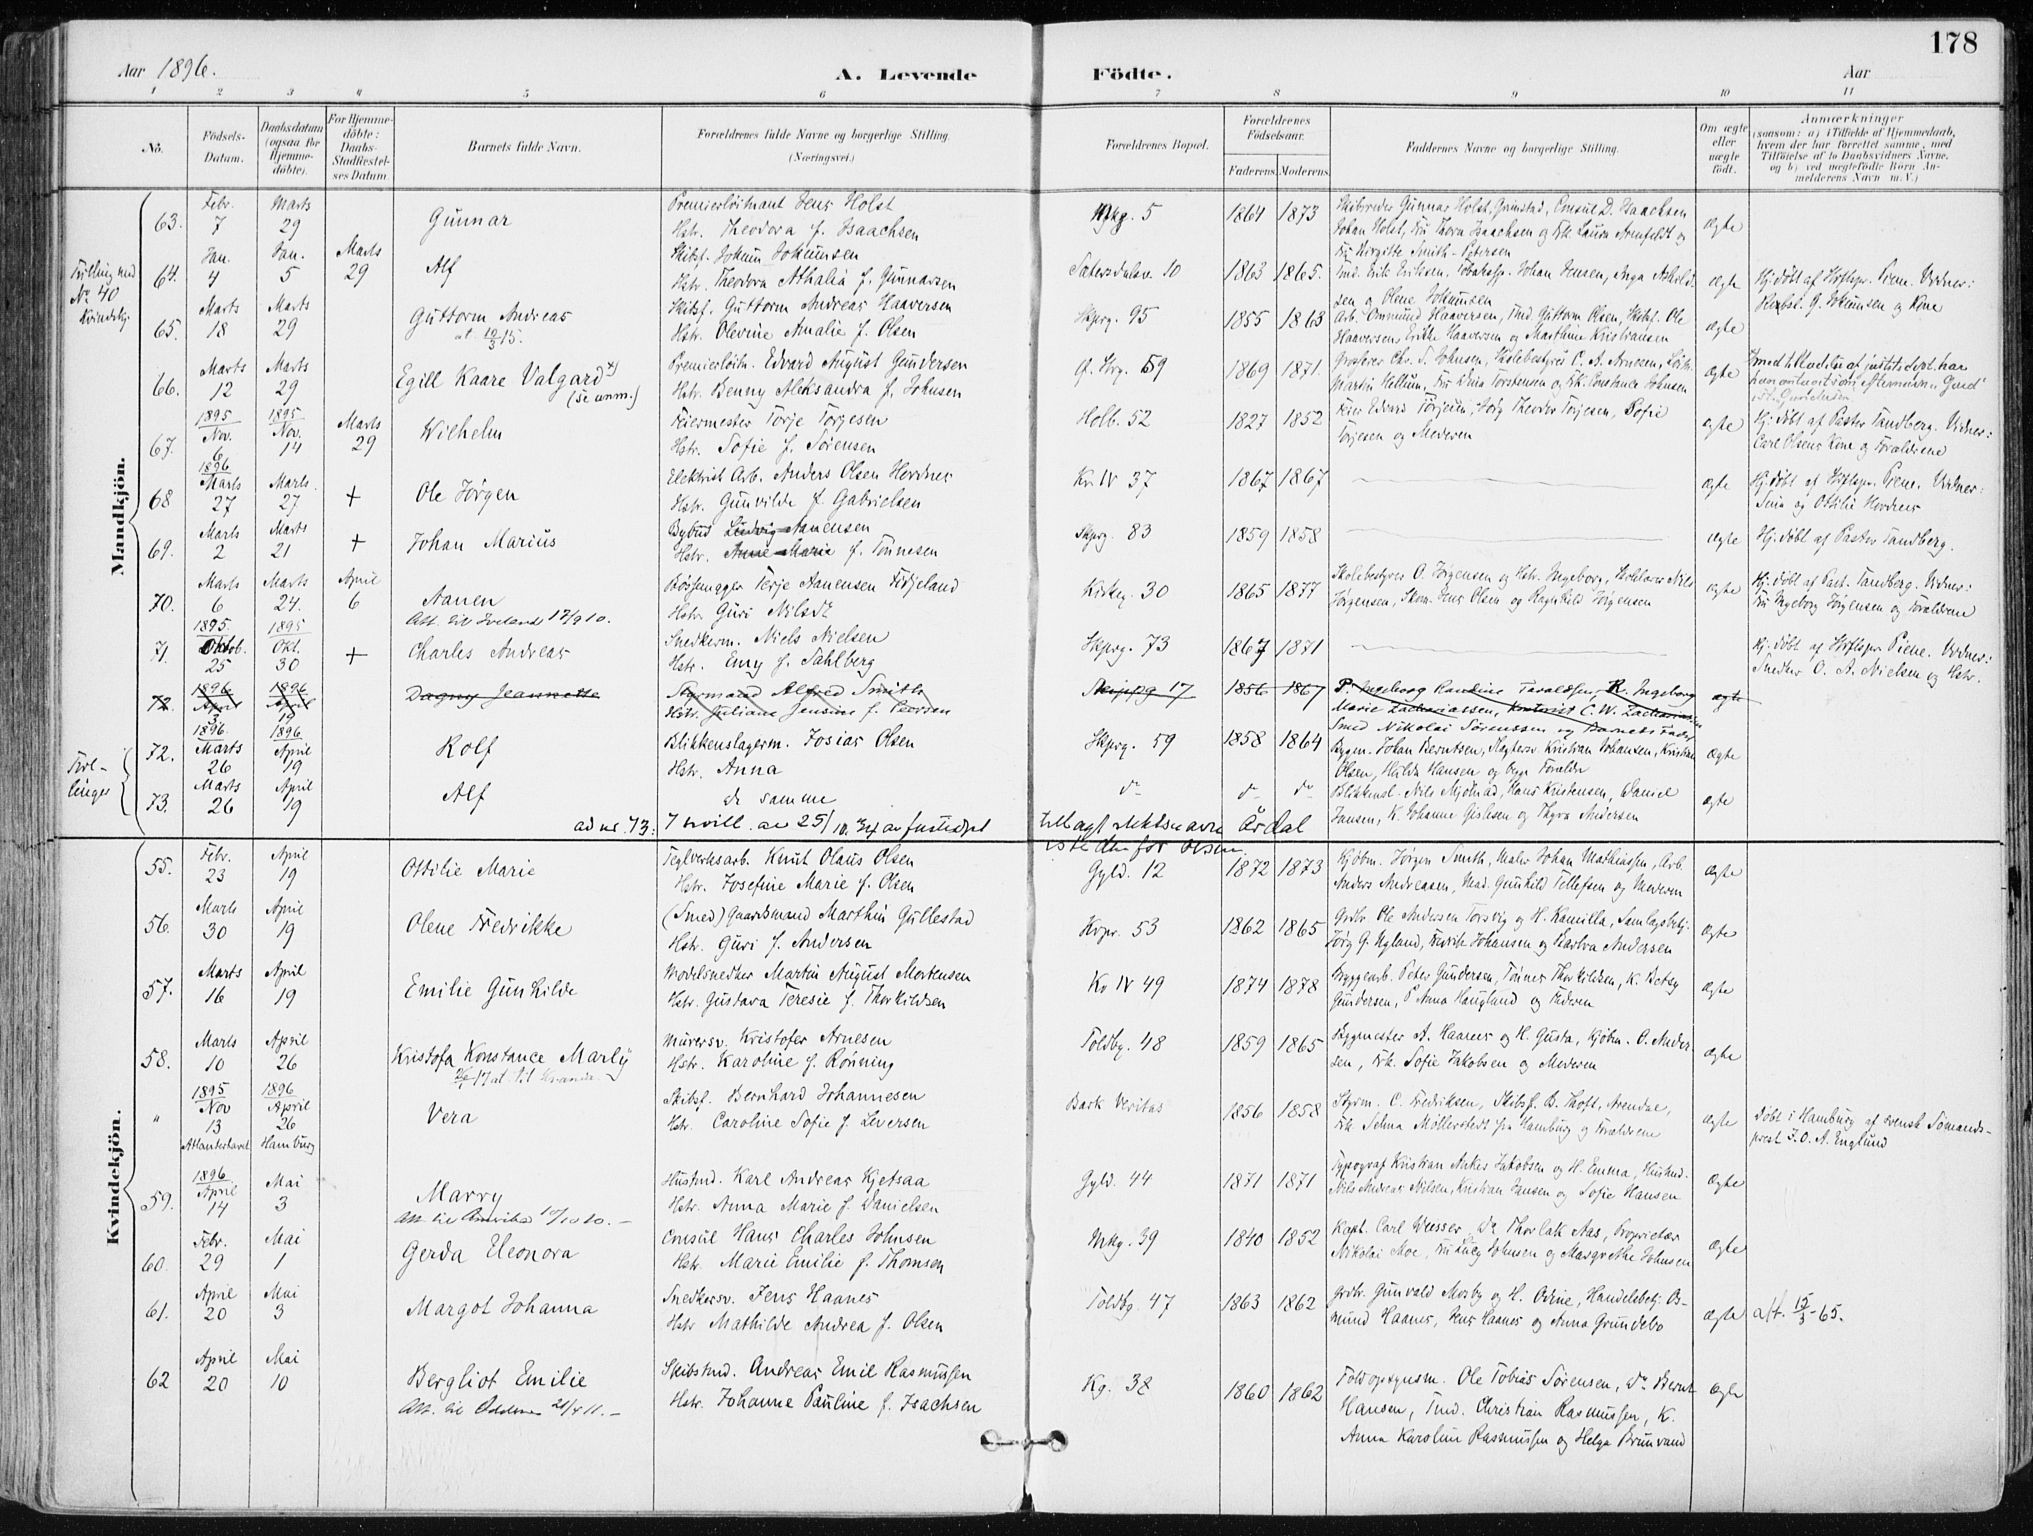 178
Aar 1896.
A. Levende
Födte.
Aar
1 2 3 4 5 6 7 8 9 10 11
No.
Födsels-Datum.
Daabsdatum (ogsaa for Hjemme-döbte).
For Hjemme-döbte: Daabs-Stadfæstel-ses Datum.
Barnets fulde Navn.
Forældrenes fulde Navne og borgerlige Stilling. (Næringsvei.)
Forældrenes Bopæl.
Forældrenes Födselsaar.
Faderens. Moderens.
Faddernes Navne og borgerlige Stilling.
Om ægte eller uægte födt.
Anmærkninger
(saasom: a) i Tilfælde af Hjemmedaab, hvem der har forrettet samme, med Tilföielse af to Daabsvidners Navne, og b) ved uægtefödte Börn An-melderens Navn m. V.)
Mandkjön.
63. Febr. 7 Marts 29 Gunnar
Premierløitnant Jens Holst
Hstr. Theodora f. Isaachsen
Mkg. 5 1864 1873
Skibsreder Gunnar Holst, Grimstad, Consul D. Isaachsen
Johan Holst, Fru Thora Isaachsen og Frk. Laura Arenfeldt og
Fru Birgitte Smith-Petersen
ægte
Tvilling med No 40 Kvindekj.
64. Jan. 4 Jan. 5 Marts 29 Alf
Skibsf. Jokum Jokumsen
Hstr. Theodora Athalia f. Gunnarsen
Sætersdalsv. 10 1863 1865.
Tmd. Erik Eriksen, Johan Jensen, Inga
sen og Olene Jokumsen
ægte
Hj. døbt af Stiftspr. Piene. Vidner:
G. Jokumsen og Kone
65. Marts 18 Marts 29 Guttorm Andreas
at. 10/3 15.
Skibsf. Guttorm Andreas Haaversen
Hstr. Olevine Amalie f. Olsen
Skprg. 95 1855 1863
Arb. Ommund Haaversen, Tmd. Guttorm Olsen, Skibsf. Ole
Haaversen, Haaversen og Marthine Kristiansen
ægte
66. Marts 12 Marts 29 Egill Kaare Valgard x)
(se anm.)
Premierløitn. Edvard August Gundersen
Hstr. Benny Aleksandra f. Johnsen
Ø. Strg. 59 1869 1871.
Grosserer Chr. S. Johnsen, Skolebestyrer C. A. Arnesen, Løitn.
Martin Kellum, Fru Dina Torstensen og Frk. Constance Johnsen
ægte
67. 1895 Nov. 6 1895 Nov. 14 Marts 29 Wilhelm
Feiermester Torje Torjesen
Hstr. Sofie f. Sørensen
Holb. 52 1827 1852
Feier Edvard Torjesen, Jørg Theodor Torjesen, Sofie
Torjesen og Moderen
ægte
Hj. døbt af Pastor Tandberg. Vidner:
Carl Olsens Kone og Forældrene
68 1896 Marts 27 Marts 27 + Ole Jørgen
Elektrisk Arb. Anders Olsen Hordnes
Hstr. Gunvilde f. Gabrielsen
Kv IV 37 1867 1867
ægte
Hj. døbt af Stiftspr. Piene. Vidner:
Sina og Ottilie Hordnes
69. Marts 2 Marts 21 + Johan Marius
Bybud Ludvig Aanensen
Hstr. Anne Marie f. Tønnesen
Skprg. 83 1859 1858
ægte
Hj. døbt af Pastor Tandberg.
70. Marts 6 Marts 24. April 6 Aanen
Att. til Iveland 17/9 10.
Børsemager Terje Aanensen Fidjeland
Hstr. Guri Nilsdr
Kirkeg. 30 1865 1877
Skolebestyrer O. Jørgensen og Hstr. Ingeborg, Skolelærer Nils
Jørgensen, Skom. Jens Olsen og Ragnhild Jørgensen
ægte
Hj. døbt af Past. Tandberg. Vidner:
Fru Ingeborg Jørgensen og Forældrene
71. 1895. Oktob. 25 1895 Okt. 30 + Charles Andreas
Snedkerm. Niels Nielsen
Hstr. Emy f. Sahlberg
Skprg. 73 1867 1871
Hj. døbt af Stiftspr. Piene. Vidner:
Snedker O. A. Nielsen og Hstr.
72. 1896 April 3 1896 April 19 Dagny Jeannette
Styrmand Alfred Smith
Hstr. Juliane Jensine f. Larsen
Skippg 17 1856 1867
P. Ingeborg Randine Taraldsen, K. Ingeborg
Marie Zachariassen, C. W. Zachariassen
Smed Nikolai Sørenssen og Barnets Fader
ægte
Tvil-linger
72. 1896. Marts 26 1896 April 19 Rolf
Blikkenslagerm. Josias Olsen
Hstr. Anna
Skprg. 59 1858 1864
Bygm. Johan Berntsen, Slagtersv. Kristian Johansen, Kristian
Olsen, Hulda Hansen og Begge Forældre
ægte
73. Marts 26 April 19 Alf
de samme
do do do
Blikkensl. Nils Mjølhad, Hans Kristensen, Daniel
Jansen, K. Johanne Gislesen og Thyra Andersen
ægte
ad nr. 73: Ifl. bevill. av 25/10. 24 av justisdept tillagt slektsnavn Årdal
istedenfor Olsen.
Kvindekjön.
55. Febr. 23 April 19 Ottilie Marie
Teglverksarb. Knut Olaus Olsen
Hstr. Josefine Marie f. Olsen
Gyld. 12 1872 1873
Kjøbm. Jørgen Smith, Maler Johan Mathiassen, Arb.
Anders Andreasen, Mad. Gunhild Tellefsen og Moderen
ægte
56. Marts 30 April 19 Olene Fredrikke
(Smed) Gaardmand Marthin Gullestad
Hstr. Guri f. Andersen
Kvpr. 53 1862 1865
Grdbr. Ole Andersen Torsvig og H. Kamilla, Samlagsbetj.
Jørg G. Nyland, Fredrik Johansen og Barbra Andersen
ægte
57. Marts 16 April 19 Emilie Gunhilde
Modelsnedker Martin August Mortensen
Hstr. Gustava Teresie f. Thorkildsen
Kv IV 49 1874 1878
Bryggearb. Peter Gundersen, Tønnes Thorkildsen, K. Betsy
Gundersen, P. Anna Haugland og Faderen
ægte
58. Marts 10 April 26 Kristofa Konstance Marly
Murersv. Kristofer Arnesen
Hstr. Karoline f. Rønning
Toldbg. 48 1859 1865
Bygmester A. Haanes og H. Gusta, Kjøbm. O. Ander-
sen, Frk. Sofie Jakobsen og Moderen
ægte
" 1895 Nov 13 Atlanterhavet 1896 April 26 Hamburg Vera
Skibsf. Bernhard Johannesen
Hstr. Caroline Sofie f. Leversen
Bark Veritas 1856 1858
Styrm. C. Fredriksen, Skibsf. B. Thoft, Arendal,
Frk. Selma Möllerstedt fra Hamburg og Forældrene
ægte
Døbt i Hamburg af svensk Sømands-
prest J. O. A. Englund
59. 1896 April 14 Mai 3 Marry
Att. til Amerika 10/10 10. -
Hustmd. Karl Andreas Kjetsaa
Hstr. Anna Marie f. Danielsen
Gyld. 44 1871 1871
Typograf Kristian Ankes Jakobsen og H. Emma, Hustmd.
Nils Andreas Nilsen, Kristian Jansen og Sofie Hansen
ægte
60. Febr. 29 Mai 1 Gerda Eleonora
Consul Hans Charles Johnsen
Hstr. Marie Emilie f. Thomsen
Mkg. 39 1840 1852
Kapt. Carl Wesser, Dr Thorlak Aas, Proprietær
Nikolai Moe, Fru Lucy Johnsen og Margrethe Johnsen
ægte
61. April 20 Mai 3 Margot Johanna
Snedkersv. Jens Haanes
Hstr Mathilde Andrea f. Olsen
Toldbg. 47 1863 1862
Grdbr. Gunvald Mosby og H. Odine, Handelsbetj. Os-
mund Haanes, Jens Haanes og Anna Grundebo
ægte
att. 15/3-65.
62 April 20 Mai 10 Bergliot Emilie
Att. til Oddernes 21/4 11. -
Skibstmd. Andreas Emil Rasmussen
Hstr. Johanne Pauline f. Isachsen
Kg. 38 1860 1862
Toldopsynsm. Ole Tobias Sørensen, do Bernt
Hansen, Tmd. Christian Rasmussen, K.
Anna Karoline Rasmussen og Helga Brunvand
ægte